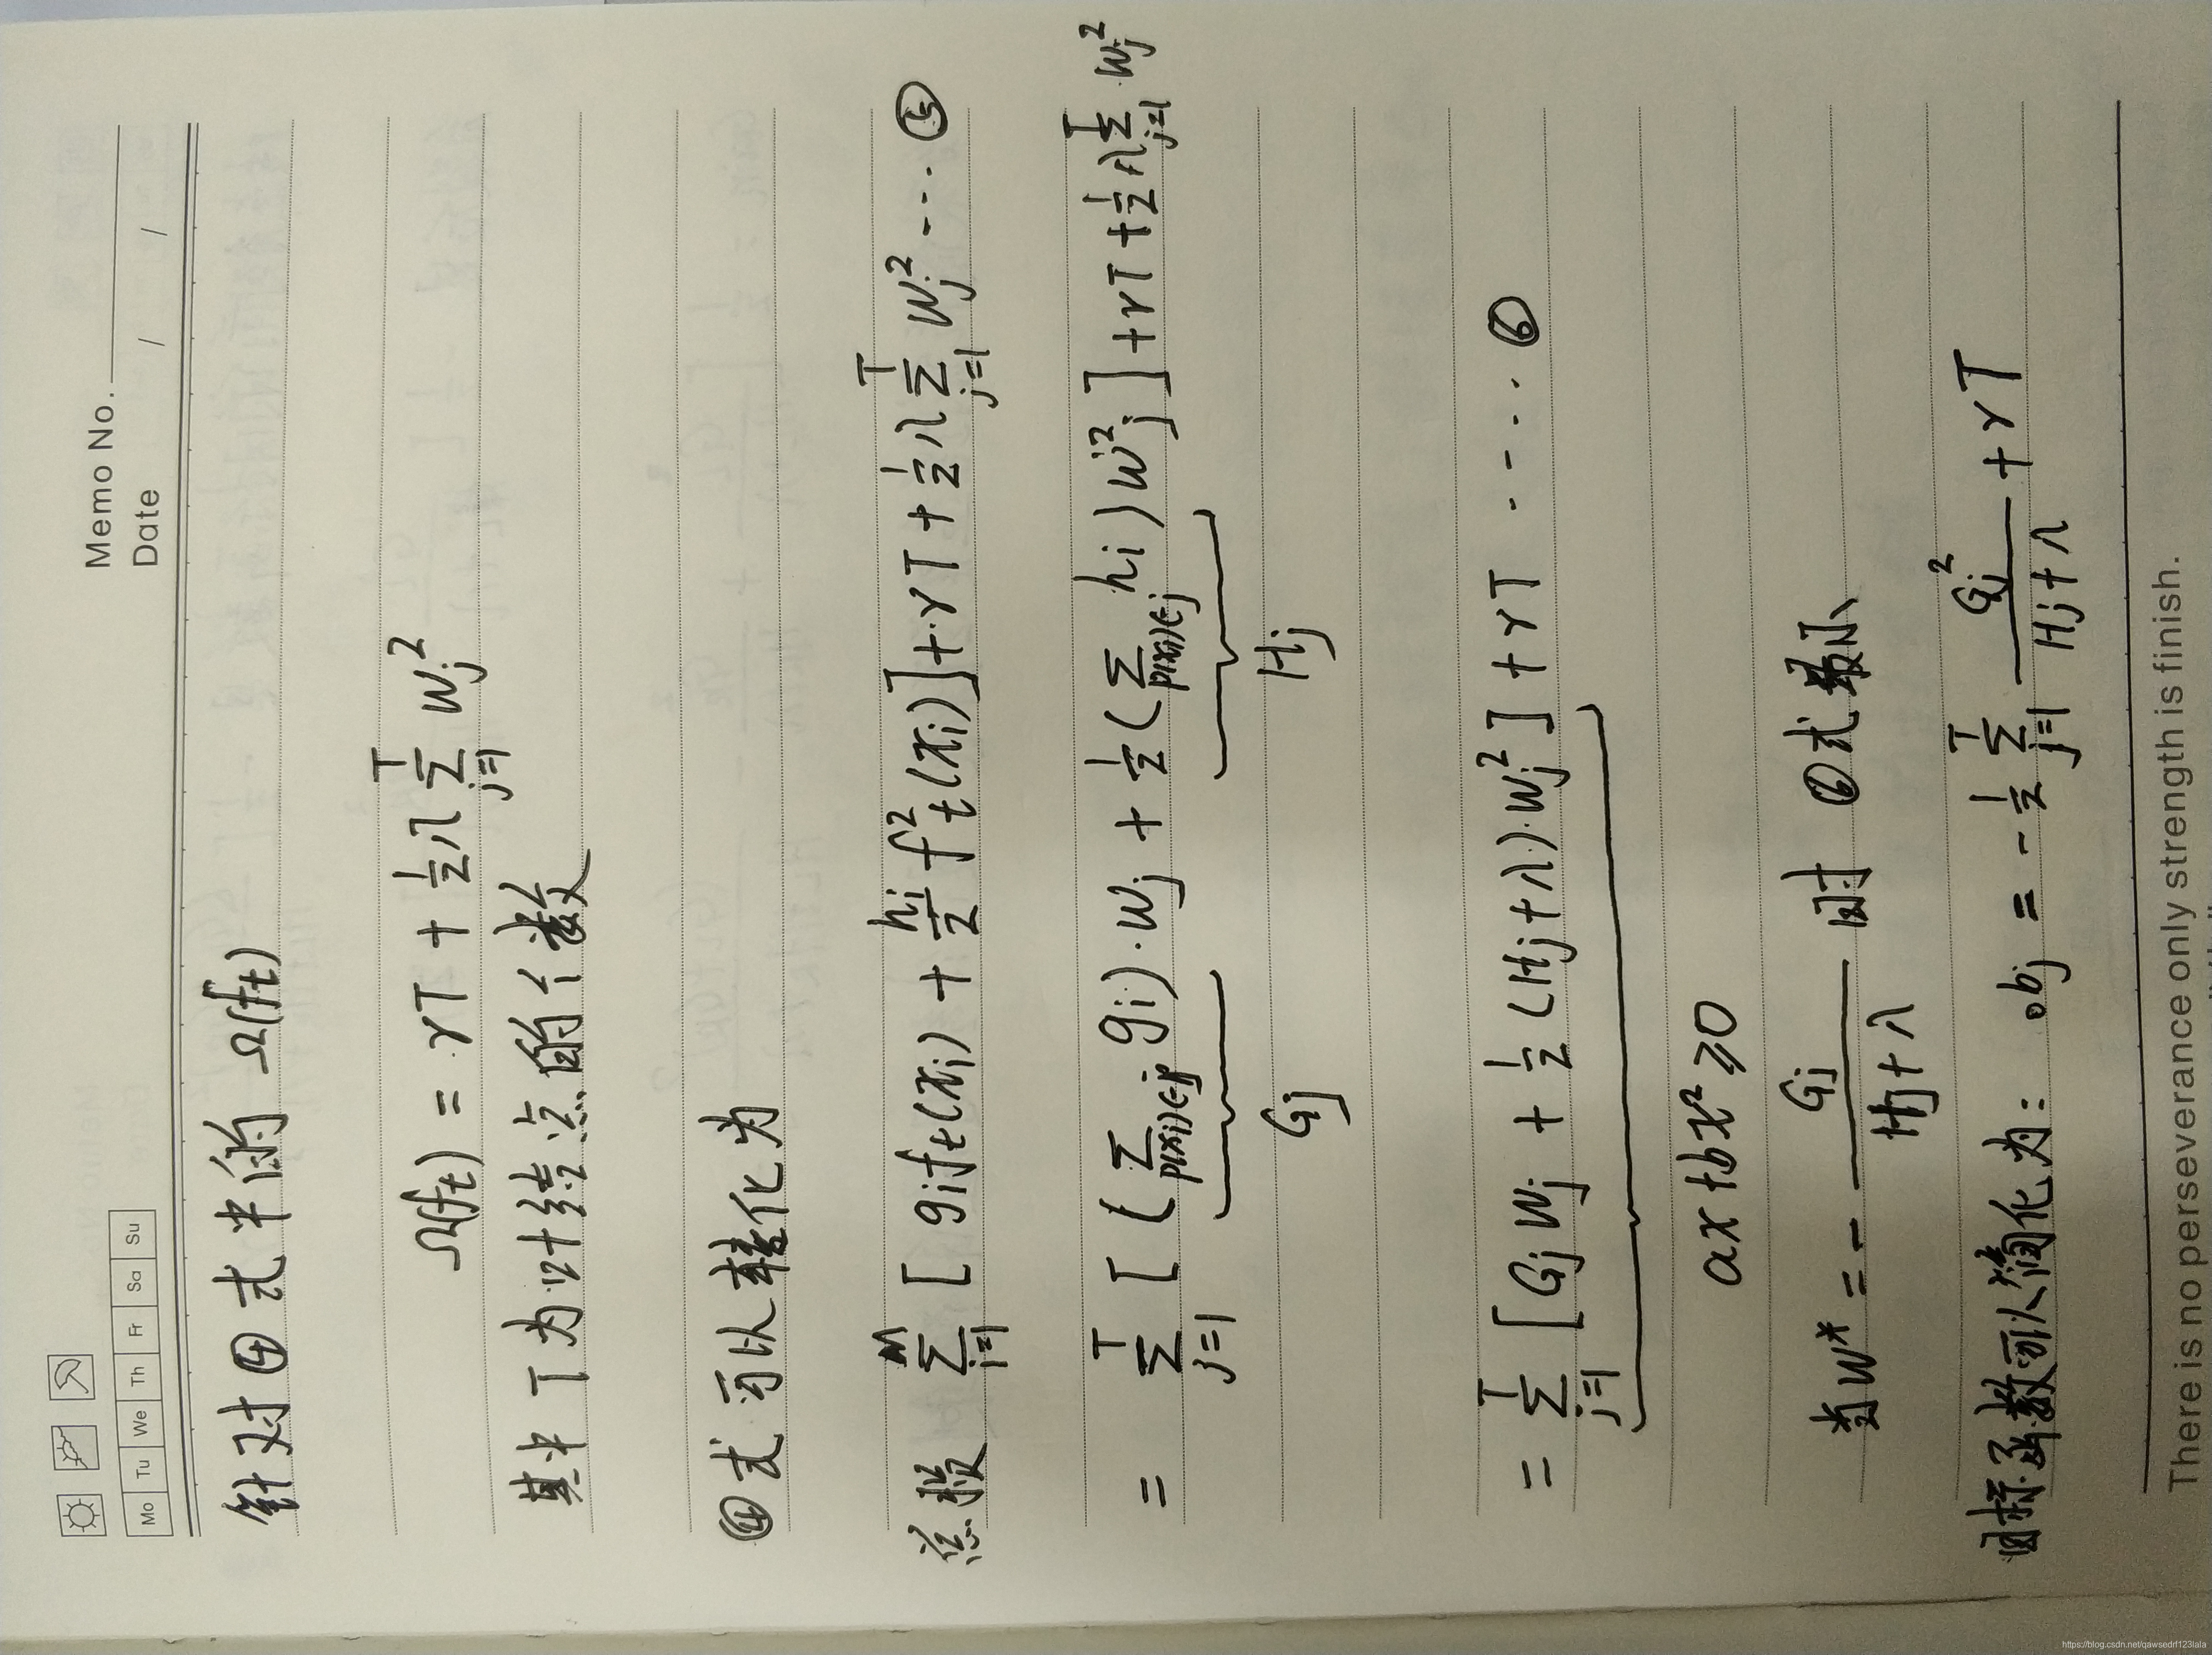 Memo No.
Mo Tu We Th Fr Sa Su
Date / /
针对④式中的 Ω(ft)
Ω(ft) = γT + 1/2 λ Σ_{j=1}^{T} wj²
其中 T 为叶结点的个数
④式可以转化为
Σ_{i=1}^{n} [gi ft(xi) + hi/2 ft²(xi)] + γT + 1/2 λ Σ_{j=1}^{T} wj² ---- ⑤
= Σ_{j=1}^{T} [(Σ_{p(xi)∈j} gi)·wj + 1/2 (Σ_{p(xi)∈j} hi) wj²] + γT + 1/2 λ Σ_{j=1}^{T} wj²
Gj Hj
= Σ_{j=1}^{T} [Gj wj + 1/2 (Hj+λ)·wj²] + γT ---- ⑥
ax + bx² ≥ 0
当 w* = - Gj/(Hj+λ) 时 ⑥式最小
目标函数可以简化为: obj = - 1/2 Σ_{j=1}^{T} Gj²/(Hj+λ) + γT
There is no perseverance only strength is finish.
https://blog.csdn.net/qawsedrf123lala